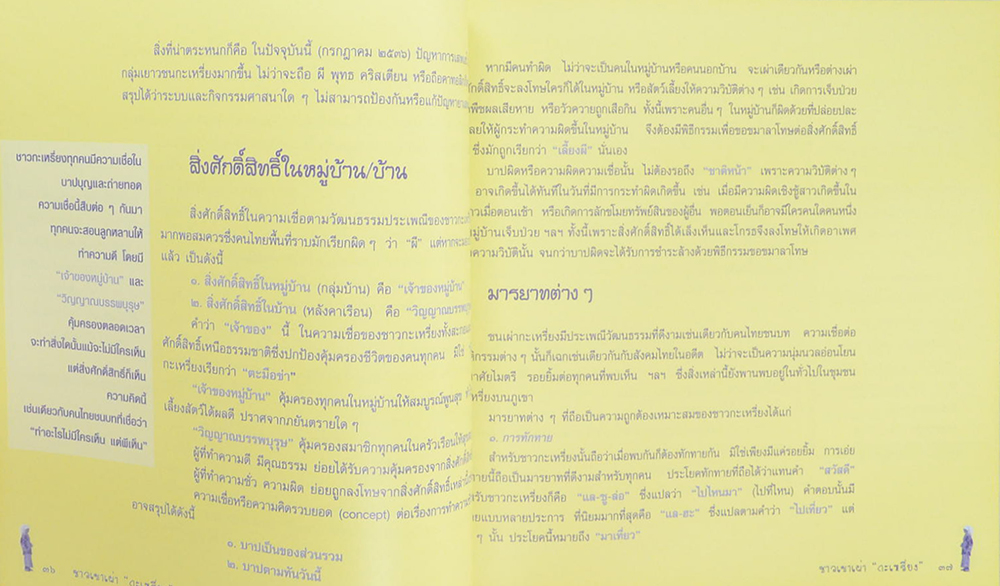 สิ่งที่น่าตระหนกก็คือ ในปัจจุบันนี้ (กรกฎาคม ๒๕๓๖) ปัญหาการเสพ
กลุ่มเยาวชนกะเหรี่ยงมากขึ้น ไม่ว่าจะถือ ผี พุทธ คริสเตียน หรือถือคาทอลิก
สรุปได้ว่าระบบและกิจกรรมศาสนาใด ๆ ไม่สามารถป้องกันหรือแก้ปัญหา
ชาวกะเหรี่ยงทุกคนมีความเชื่อใน
บาปบุญและถ่ายทอด
ความเชื่อนี้สืบต่อ ๆ กันมา
ทุกคนจะสอนลูกหลานให้
ทำความดี โดยมี
"เจ้าของหมู่บ้าน" และ
"วิญญาณบรรพบุรุษ"
คุ้มครองตลอดเวลา
จะทำสิ่งใดนั้นแม้จะไม่มีใครเห็น
แต่สิ่งศักดิ์สิทธิ์ก็เห็น
ความคิดนี้
เช่นเดียวกับคนไทยชนบทที่เชื่อว่า
"ทำอะไรไม่มีใครเห็น แต่ผีเห็น"
สิ่งศักดิ์สิทธิ์ในหมู่บ้าน/บ้าน
สิ่งศักดิ์สิทธิ์ในความเชื่อตามวัฒนธรรมประเพณีของชาว
มากพอสมควรซึ่งคนไทยพื้นที่ราบมักเรียกผิด ๆ ว่า "ผี" แต่หากจะ
แล้ว เป็นดังนี้
๑. สิ่งศักดิ์สิทธิ์ในหมู่บ้าน (กลุ่มบ้าน) คือ "เจ้าของหมู่บ้าน"
๒. สิ่งศักดิ์สิทธิ์ในบ้าน (หลังคาเรือน) คือ "วิญญาณบรรพบุรุษ"
คำว่า "เจ้าของ" นี้ ในความเชื่อของชาวกะเหรี่ยงทั้ง
ศักดิ์สิทธิ์เหนือธรรมชาติซึ่งปกป้องคุ้มครองชีวิตของคนทุกคน มิใช่
กะเหรี่ยงเรียกว่า "ตะมือข่า"
"เจ้าของหมู่บ้าน" คุ้มครองทุกคนในหมู่บ้านให้สมบูรณ์พูนสุข
เลี้ยงสัตว์ได้ผลดี ปราศจากภยันตรายใด ๆ
"วิญญาณบรรพบุรุษ" คุ้มครองสมาชิกทุกคนในครัวเรือนให้
ผู้ที่ทำความดี มีคุณธรรม ย่อมได้รับความคุ้มครองจากสิ่งศักดิ์สิทธิ์
ผู้ที่ทำความชั่ว ความผิด ย่อมถูกลงโทษจากสิ่งศักดิ์สิทธิ์เหล่านี้
ความเชื่อหรือความคิดรวบยอด (concept) ต่อเรื่องการทำความ
อาจสรุปได้ดังนี้
๑. บาปเป็นของส่วนรวม
๒. บาปตามทันวันนี้
๓๖ ชาวเขาเผ่า "กะเหรี่ยง"
หากมีคนทำผิด ไม่ว่าจะเป็นคนในหมู่บ้านหรือคนนอกบ้าน จะเผ่าเดียวกันหรือต่างเผ่า
ศักดิ์สิทธิ์จะลงโทษใครก็ได้ในหมู่บ้าน หรือสัตว์เลี้ยงให้ความวิบัติต่าง ๆ เช่น เกิดการเจ็บป่วย
พืชผลเสียหาย หรือวัวควายถูกเสือกิน ทั้งนี้เพราะคนอื่น ๆ ในหมู่บ้านก็ผิดด้วยที่ปล่อยปละ
เลยให้ผู้กระทำความผิดขึ้นในหมู่บ้าน จึงต้องมีพิธีกรรมเพื่อขอขมาลาโทษต่อสิ่งศักดิ์สิทธิ์
ซึ่งมักถูกเรียกว่า "เลี้ยงผี" นั่นเอง
บาปผิดหรือความผิดความเชื่อนั้น ไม่ต้องรอถึง "ชาติหน้า" เพราะความวิบัติต่าง ๆ
อาจเกิดขึ้นได้ทันทีในวันที่มีการกระทำผิดเกิดขึ้น เช่น เมื่อมีความผิดเชิงชู้สาวเกิดขึ้นใน
เมื่อตอนเช้า หรือเกิดการลักขโมยทรัพย์สินของผู้อื่น พอตอนเย็นก็อาจมีใครคนใดคนหนึ่ง
หมู่บ้านเจ็บป่วย ฯลฯ ทั้งนี้เพราะสิ่งศักดิ์สิทธิ์ได้เล็งเห็นและโกรธจึงลงโทษให้เกิดอาเพศ
ความวิบัตินั้น จนกว่าบาปผิดจะได้รับการชำระล้างด้วยพิธีกรรมขอขมาลาโทษ
มารยาทต่าง ๆ
ชนเผ่ากะเหรี่ยงมีประเพณีวัฒนธรรมที่ดีงามเช่นเดียวกับคนไทยชนบท ความเชื่อต่อ
กรรมต่าง ๆ นั้นก็เฉกเช่นเดียวกันกับสังคมไทยในอดีต ไม่ว่าจะเป็นความนุ่มนวลอ่อนโยน
ไมตรี รอยยิ้มต่อทุกคนที่พบเห็น ฯลฯ ซึ่งสิ่งเหล่านี้ยังพานพบอยู่ในทั่วไปในชุมชน
เหรี่ยงบนภูเขา
มารยาทต่าง ๆ ที่ถือเป็นความถูกต้องเหมาะสมของชาวกะเหรี่ยงได้แก่
๑. การทักทาย
สำหรับชาวกะเหรี่ยงนั้นถือว่าเมื่อพบกันก็ต้องทักทายกัน มิใช่เพียงมีแค่รอยยิ้ม การเอ่ย
นี้ถือเป็นมารยาทที่ดีงามสำหรับทุกคน ประโยคทักทายที่ถือได้ว่าแทนคำ "สวัสดี"
รับชาวกะเหรี่ยงก็คือ "แล-ซู-ล่อ" ซึ่งแปลว่า "ไปไหนมา" (ไปที่ไหน) คำตอบนั้นมี
แบบหลายประการ ที่นิยมมากที่สุดคือ "แล-ฮะ" ซึ่งแปลตามคำว่า "ไปเที่ยว" แต่
ๆ นั้น ประโยคนี้หมายถึง "มาเที่ยว"
ชาวเขาเผ่า "กะเหรี่ยง" ๓๗